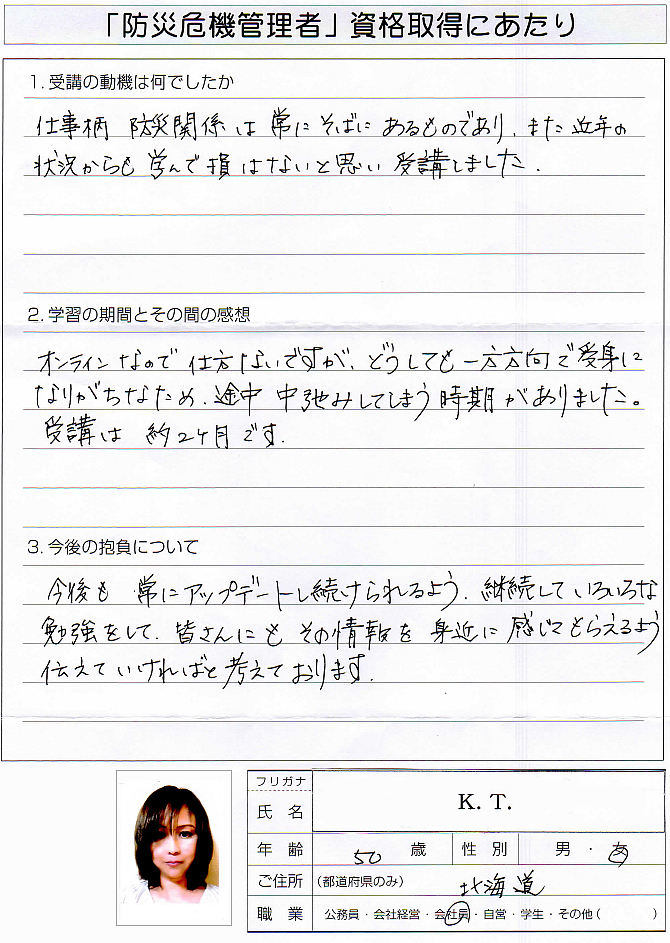 「防災危機管理者」資格取得にあたり
1. 受講の動機は何でしたか
仕事柄 防災関係は常にそばにあるものであり、また近年の
状況からも学んで損はないと思い受講しました。
2. 学習の期間とその間の感想
オンラインなので仕方ないですが、どうしても一方方向で受身に
なりがちなため、途中 中弛みしてしまう時期がありました。
受講は 約2ヶ月です。
3. 今後の抱負について
今後も 常にアップデートし続けられるよう、継続していろいろな
勉強をして、皆さんにも その情報を 身近に感じてもらえるよう
伝えていければと考えております。
フリガナ
氏 名 K. T.
年 齢 50 歳 性 別 男 ・ 女
ご住所 (都道府県のみ) 北海道
職 業 公務員・会社経営・会社員・自営・学生・その他( )